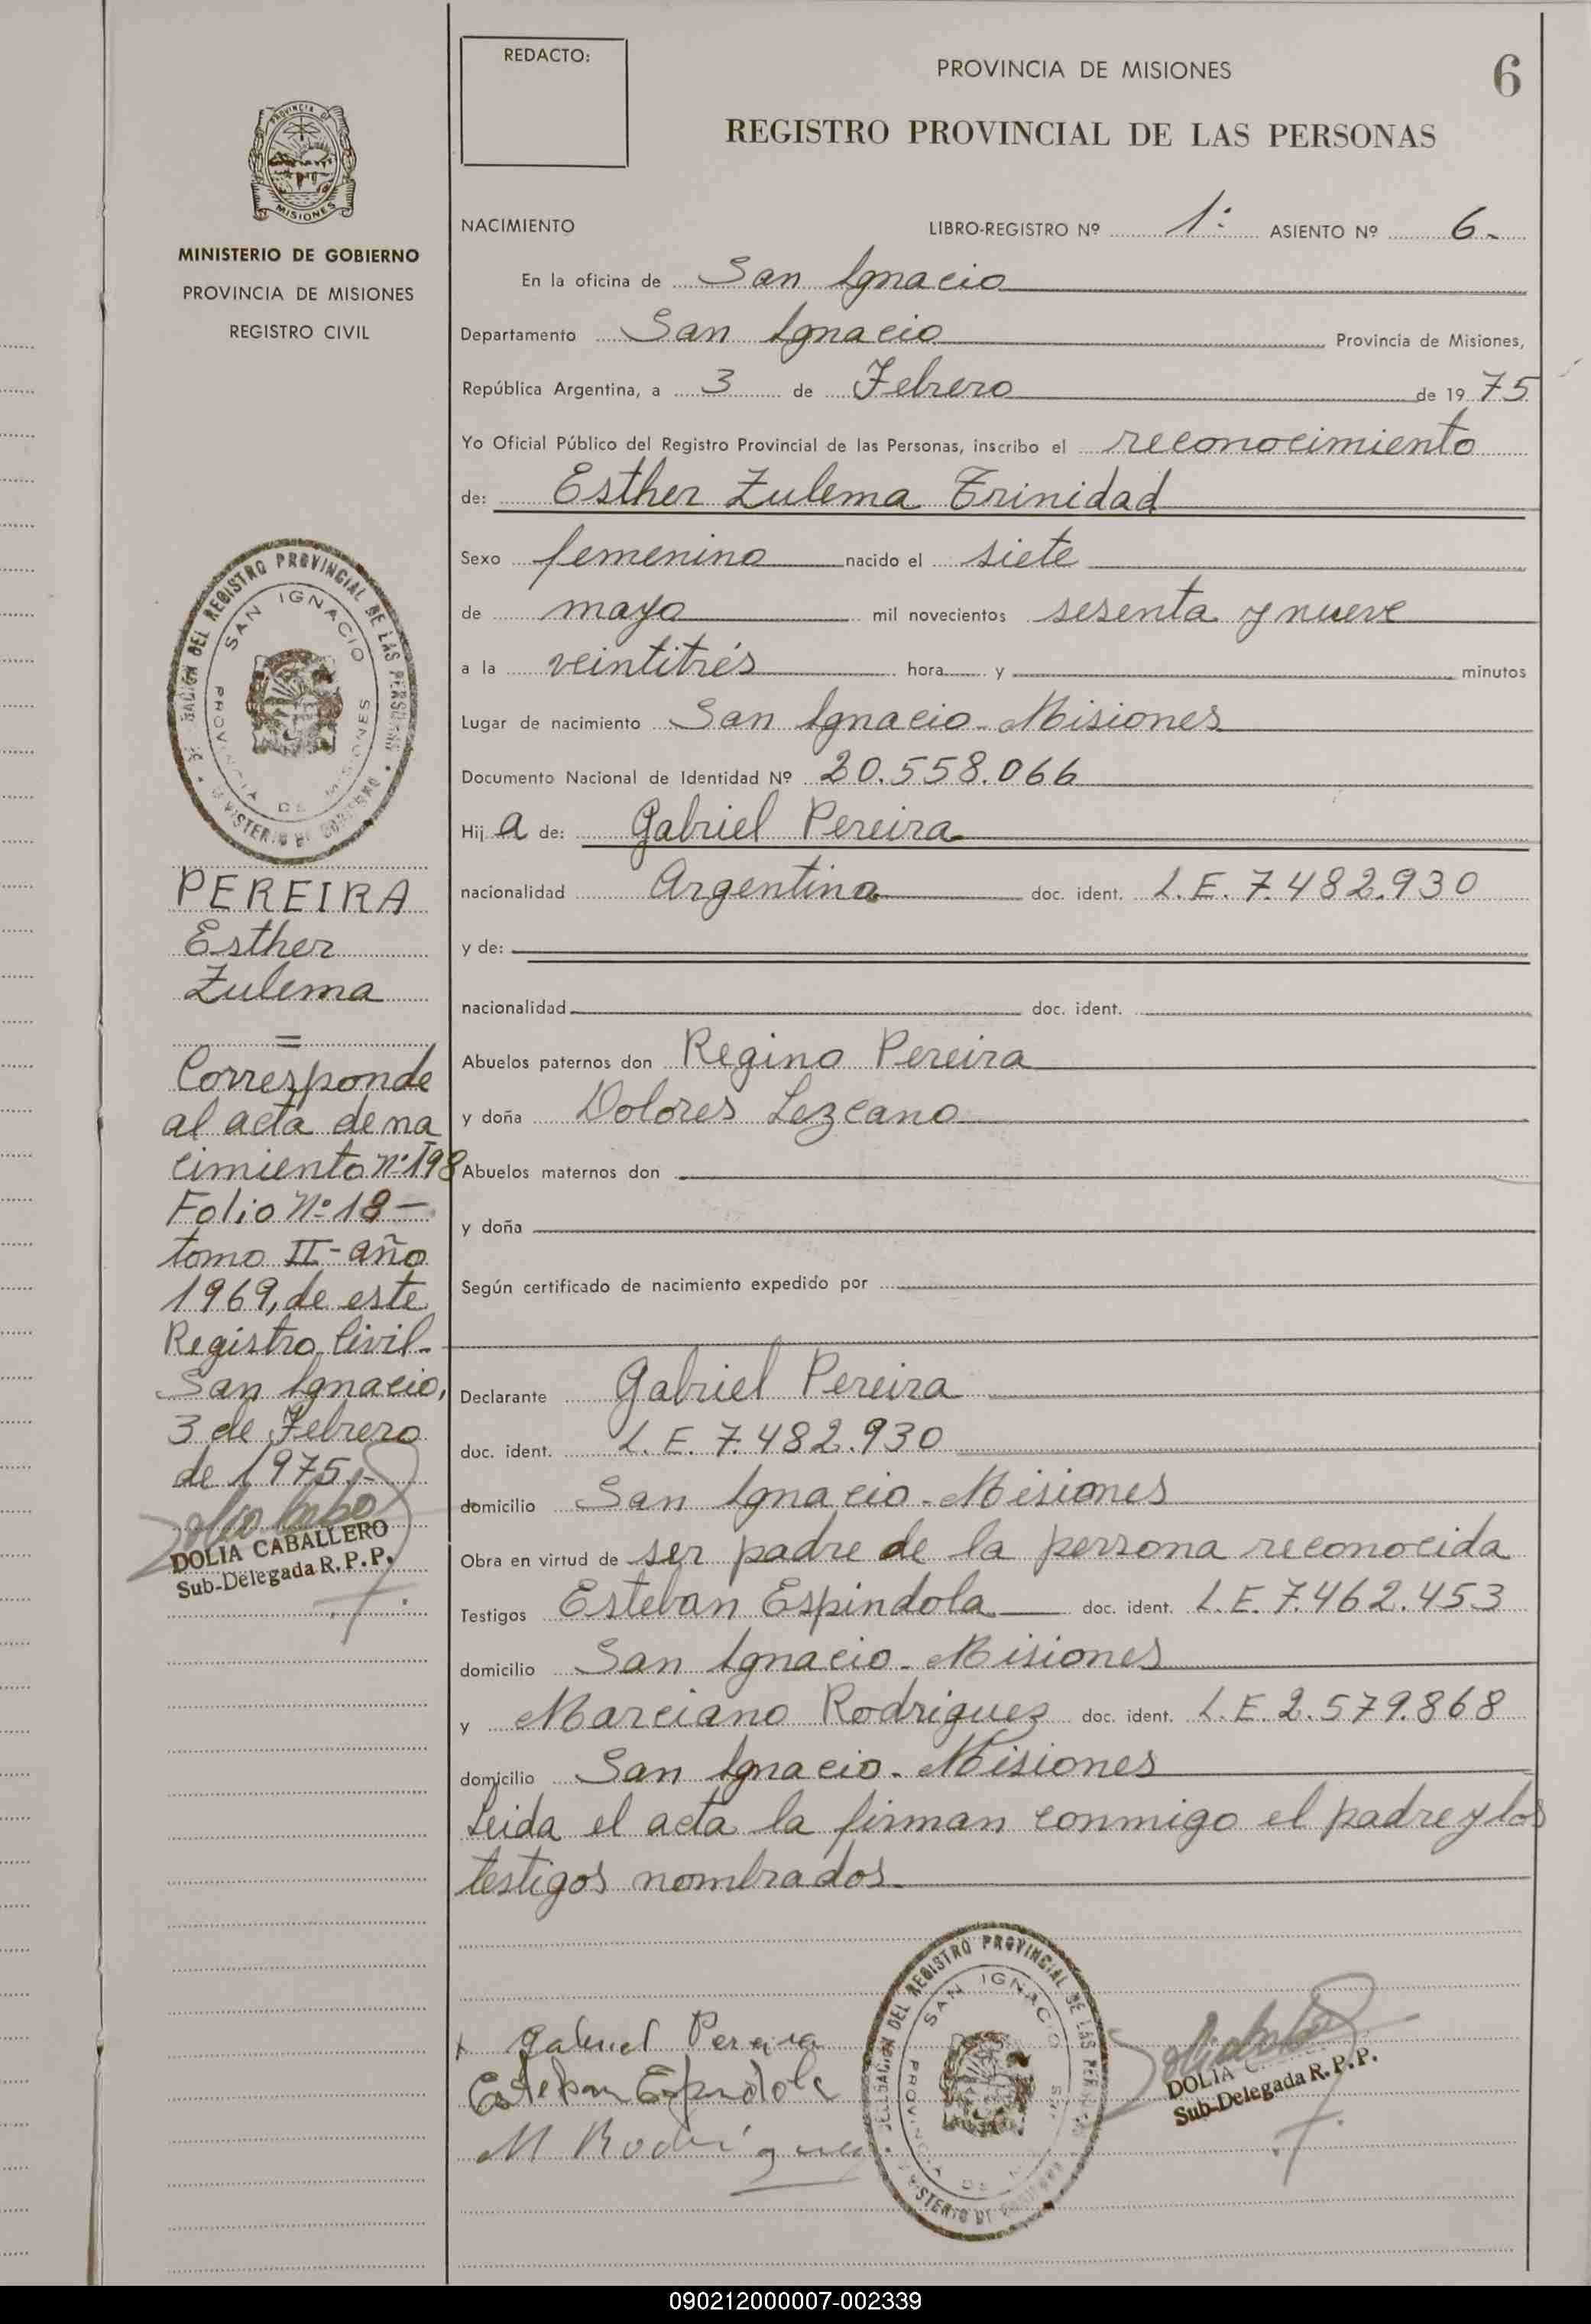 REDACTO:
PROVINCIA DE MISIONES
6
REGISTRO PROVINCIAL DE LAS PERSONAS
PROVINCIA DE
MISIONES
MINISTERIO DE GOBIERNO
PROVINCIA DE MISIONES
REGISTRO CIVIL
NACIMIENTO LIBRO-REGISTRO Nº 1º ASIENTO Nº 6-
En la oficina de San Ignacio
Departamento San Ignacio Provincia de Misiones,
República Argentina, a 3 de Febrero de 1975
Yo Oficial Público del Registro Provincial de las Personas, inscribo el reconocimiento
de: Esther Zulema Trinidad
Sexo femenino nacido el siete
de mayo mil novecientos sesenta y nueve
a la veintitrés hora y minutos
Lugar de nacimiento San Ignacio-Misiones
Documento Nacional de Identidad Nº 20.558.066
Hij a de: Gabriel Pereira
nacionalidad Argentina doc. ident. L.E. 7.482.930
y de:
nacionalidad doc. ident.
Abuelos paternos don Regino Pereira
y doña Dolores Lezcano
Abuelos maternos don
y doña
Según certificado de nacimiento expedido por
Declarante Gabriel Pereira
doc. ident. L.E. 7.482.930
domicilio San Ignacio-Misiones
Obra en virtud de ser padre de la persona reconocida
Testigos Esteban Espindola doc. ident. L.E. 7.462.453
domicilio San Ignacio-Misiones
y Marciano Rodriguez doc. ident. L.E. 2.579.868
domicilio San Ignacio-Misiones
Leida el acta la firman conmigo el padre y los
testigos nombrados.
DEL REGISTRO PROVINCIAL DE LAS PERSONAS
SAN IGNACIO
PROVINCIA DE MISIONES
MINISTERIO DE GOBIERNO
PEREIRA
Esther
Zulema
=
Corresponde
al acta de na
cimiento nº 198
Folio Nº 18-
tomo II-año
1969, de este
Registro Civil-
San Ignacio,
3 de Febrero
de 1975.-
DOLIA CABALLERO
Sub-Delegada R.P.P.
x Gabriel Pereira
Esteban Espindola
M Rodríguez
DELEGACION DEL REGISTRO PROVINCIAL DE LAS
SAN IGNACIO
DOLIA C
Sub-Delegada R.P.P.
090212000007-002339